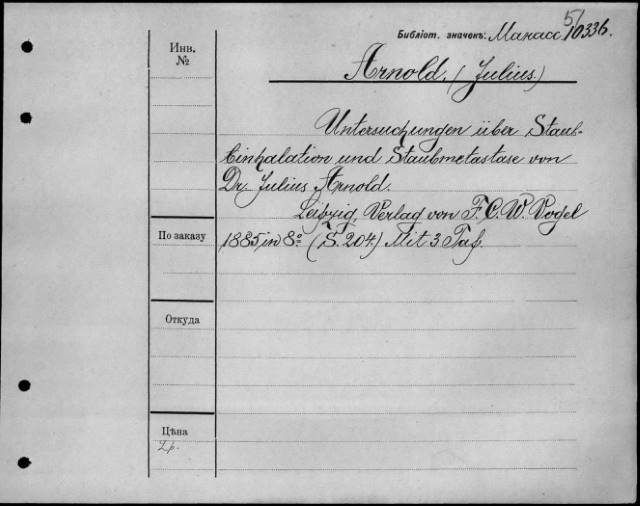 51
Библіот. значекъ: Манасс 10336.
Инв.
№
Arnold, (Julius.)
Untersuchungen über Staub-
Einhalation und Staubmetastase von
Dr. Julius Arnold.
Leipzig, Verlag von F. C. W. Vogel
По заказу
1885 in 8º (S. 204.) Mit 3 Taf.
Откуда
Цѣна